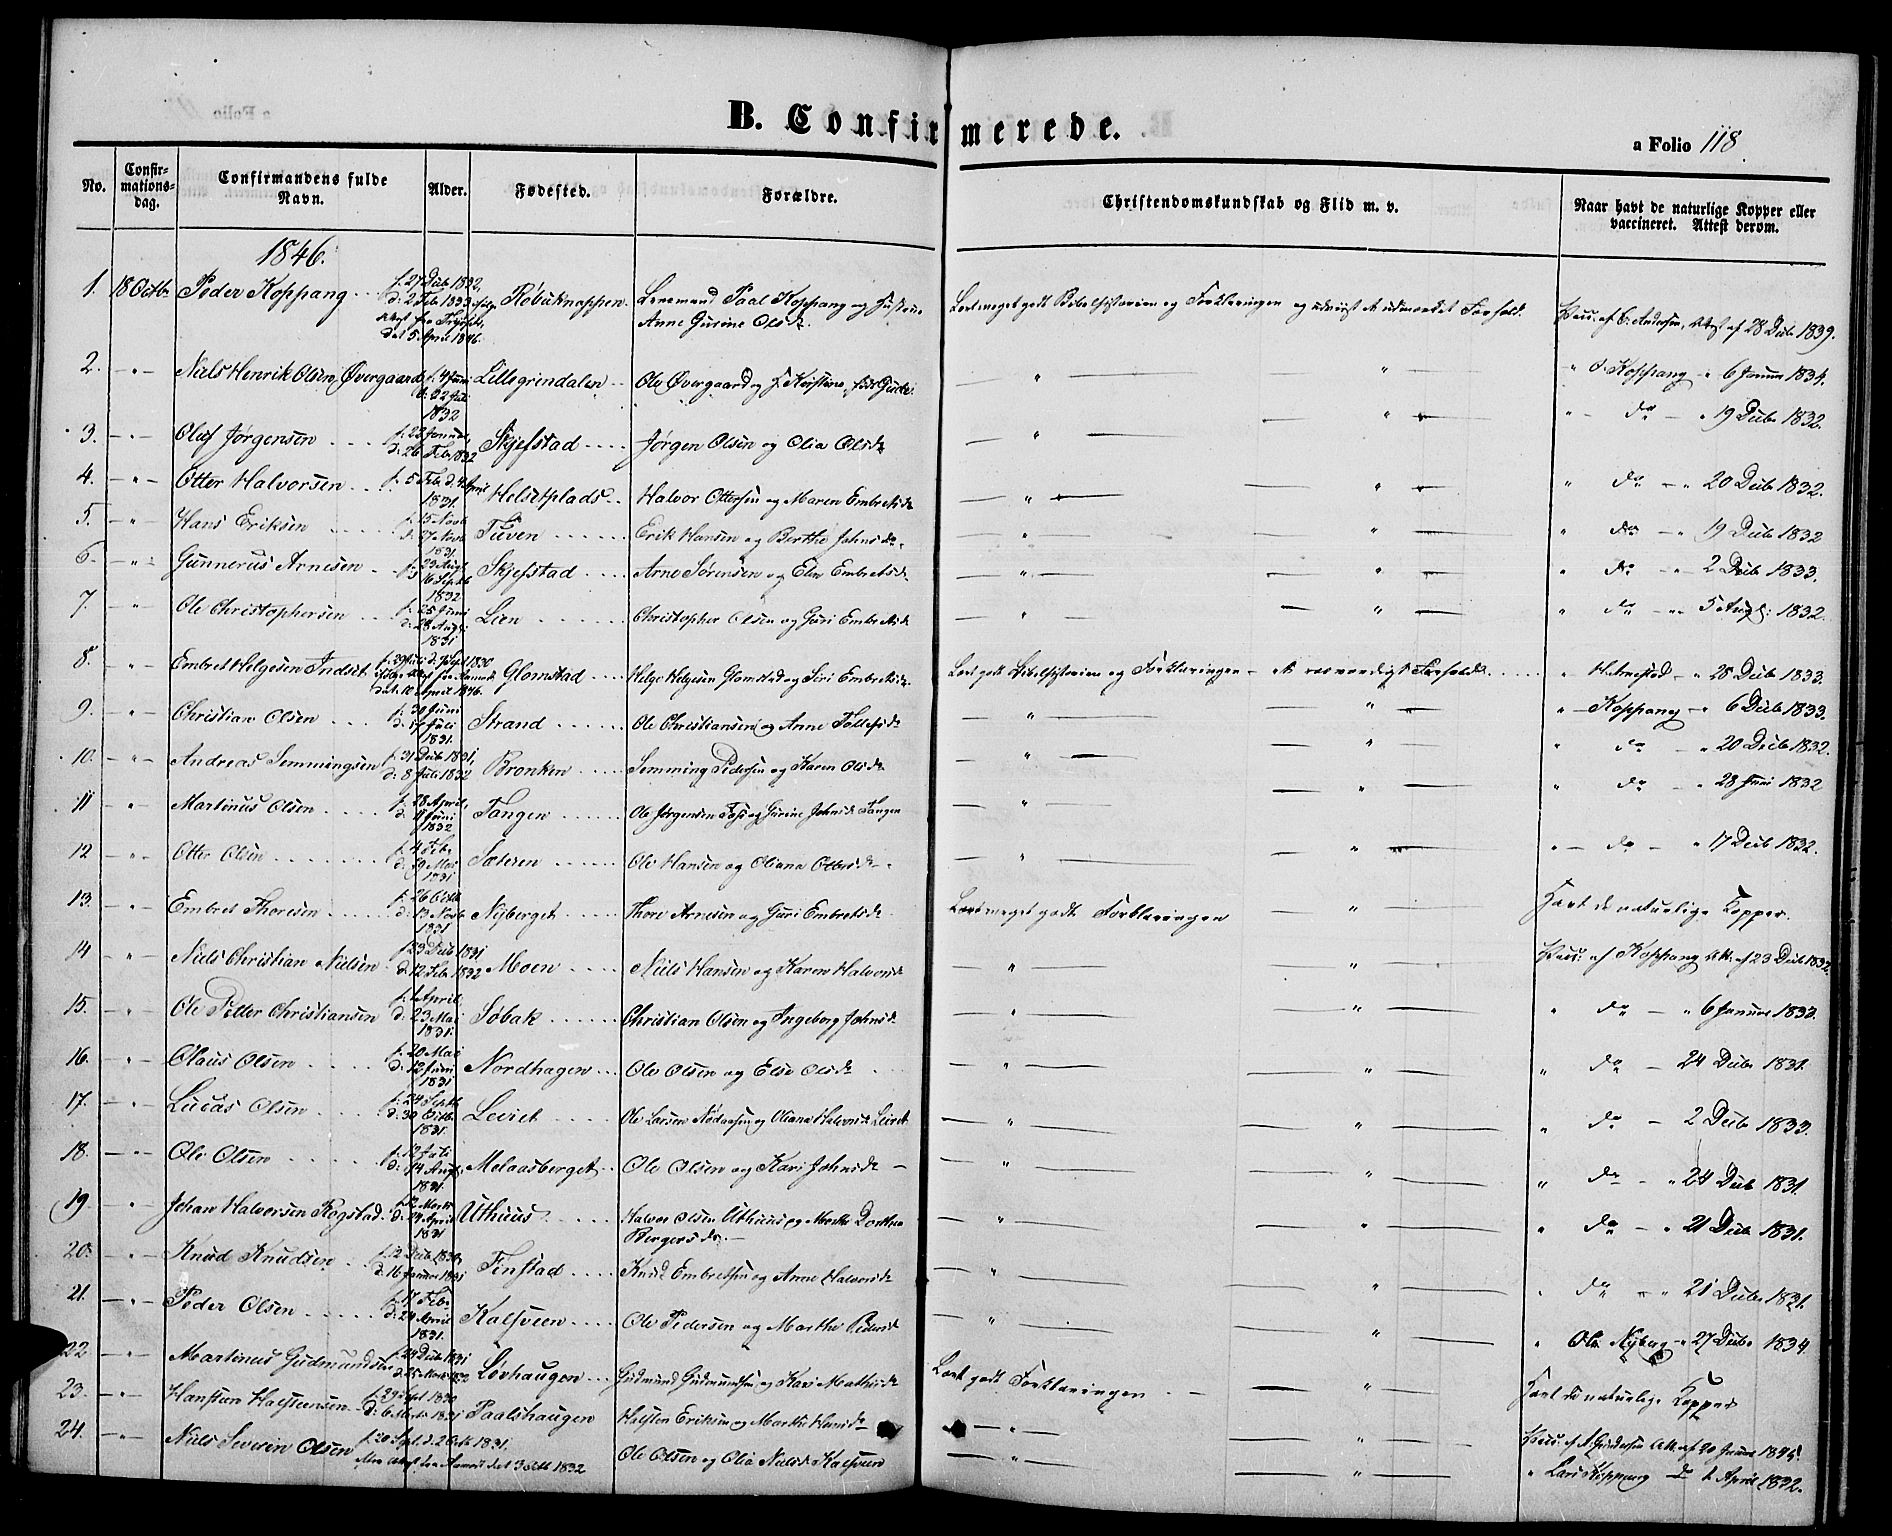 B. Confirmerede.
a Folio 118.
No. Confirmations-dag. Confirmandens fulde Navn. Alder. Fødested. Forældre. Christendomskundskab og Flid m. v. Naar havt de naturlige Kopper eller vaccineret. Attest derom.
1846.
1. 18 Octb. Peder Koppang f. 27 Decb 1832, d. 2 Feb 1833 Lensmand Paal Koppang og Hustrue Anne Gurine Olsdr Vacc. af C. Andersen, Attest af 28 Decb 1839.
dat 5 April 1846.
2. " Niels Henrik Olsen Øvergaard f. 4 Juni 1832 Lillegrindalen Ole Øvergaard og " " Koppang " 6 Januar 1834.
3. " Oluf Jørgensen f. 22 Januar d. 26 Feb 1832 Skjefstad Jørgen Olsen og Olia Olsdr " " do " 19 Decb 1832.
4. " Otter Halvorsen f. 5 Feb d. 4 April 1831. Helsetplads Halvor Ottersen og Maren Embretsdr " " do " 20 Decb 1832.
5. " Hans Eriksen f. 15 Novb d. 27 Novb 1831 Tuven Erik Hansen og Berthe Johnsdr " " do " 19 Decb 1832
6. " Gunnerus Arnesen f. 23 Aug d. 16 Septb 1832 Skjefstad Arne Sørensen og Elen Embretsdr " " do " 2 Decb 1833.
7. " Ole Christophersen f. 25 Juni d. 28 Aug 1831 Lien Christopher Olsen og Guri Embretsdr " " do " 5 Augt. 1832.
8. " Embret Helgesen Indset dat. 10 April 1846. Glomstad Helge Helgesen Glomstad og Siri Embretsdr Læst godt Bibelhistorien og Forklaringen " 28 Decb 1833.
9. " Christian Olsen f. 30 Juni d. 17 Juli 1831. Strand Ole Christiansen og Anne Tollefsdr " " " Koppang " 6 Decb 1833.
10. " Andreas Semmingsen f. 31 Decb 1831, d. 8 Juli 1832 Bronken Semming Pedersen og Karen Olsdr " " " do " 20 Decb 1832.
11 " Martinus Olsen f. 28 April d. Juni 1832 Tangen Ole Jørgensen og Gurine Johnsdr Tangen " " " do " 28 Juni 1832
12 " Otter Olsen f. 4 Feb. d. 19 Mai 1831 Sæteren Ole Hansen og Oliana Ottersdr " " " do " 17 Decb 1832.
13. " Embret Thoresen f. 26 Octb d. 13 Novb 1831 Nyberget Thore Arnesen og Guri Embretsdr Læst meget godt Forklaringen " Havt de naturlige Kopper.
14 " Niels Christian Nielsen f. 23 Decb 1831 d. 12 Feb 1832 Moen Niels Hansen og Karen Halvorsdr " " Vacc: af Koppang Att. af 23 Decb 1832.
15. " Ole Petter Christiansen f. 1 April d. 23 Mai 1831. Søbak Christian Olsen og Ingeborg Johnsdr " " " do " 6 Januar 1833.
16. " Olaus Olsen f. 20 Mai d. 12 Juni 1831 Nordhagen Ole Olsen og Else Olsdr " " " do 24 Decb 1831.
17. " Lucas Olsen f. 24 Septb d. 30 Octb 1831. Leviet Ole Larsen og Oliana Halvorsdr " " " do 2 Decb 1833.
18. " Ole Olsen f. 12 Juli d. 14 Aug. 1831. Melaasberget Ole Olsen og Kari Johnsdr " " " do " 24 Decb 1831.
19. " Johan Halvorsen Rogstad f. 12 Marts d. 24 April 1831 Uthuus Halvor Olsen Uthuus og Marthe Dorthea Bergersdr. " " " do " 21 Decb 1831.
20. " Knud Knudsen f. 12 Decb 1830, d. 16 Januar 1831 Finstad Knud Embretsen og Anne Halvorsdr " " " do " 21 Decb 1831.
21. " Peder Olsen f. 17 Feb. d. 24 April 1831. Kalfveen Ole Pedersen og Marthe Pedersdr " " " Ole Nyberg " 27 Decb 1834.
22 " Martinus Gudmundsen f. 24 Decb 1831 Løvhaugen Gudmund Gudmundsen og Kari Mathisdr Læst godt Forklaringen " Havt de naturlige Kopper
23. " Hansteen Halsteensen f. 29 Sept 1830 d. 6 Marts 1831 Paalshaugen Halsten Eriksen og Marthe Hansdr " " Vacc: af A. Gundersen Att. af 20 Januar
24. " Niels Severin Olsen f. 20 Sept. d. 2 Octb 1831. Ole Olsen og Olia Nielsdr Kalfveen " " " Lars Koppang d 1 April 1832.